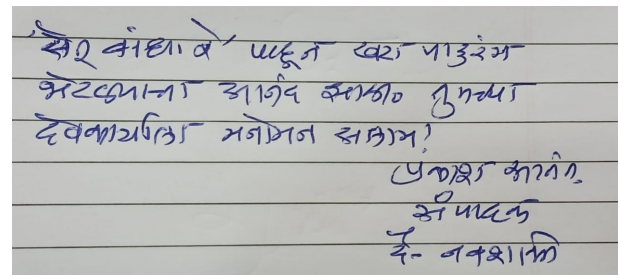 'सेतू बांधा रे' पाहून खरा पांडुरंग
भेटल्याचा आनंद झाला. तुमच्या
देवकार्याला मनोमन सलाम!
प्रकाश सावंत,
संपादक
दै- नवशक्ति